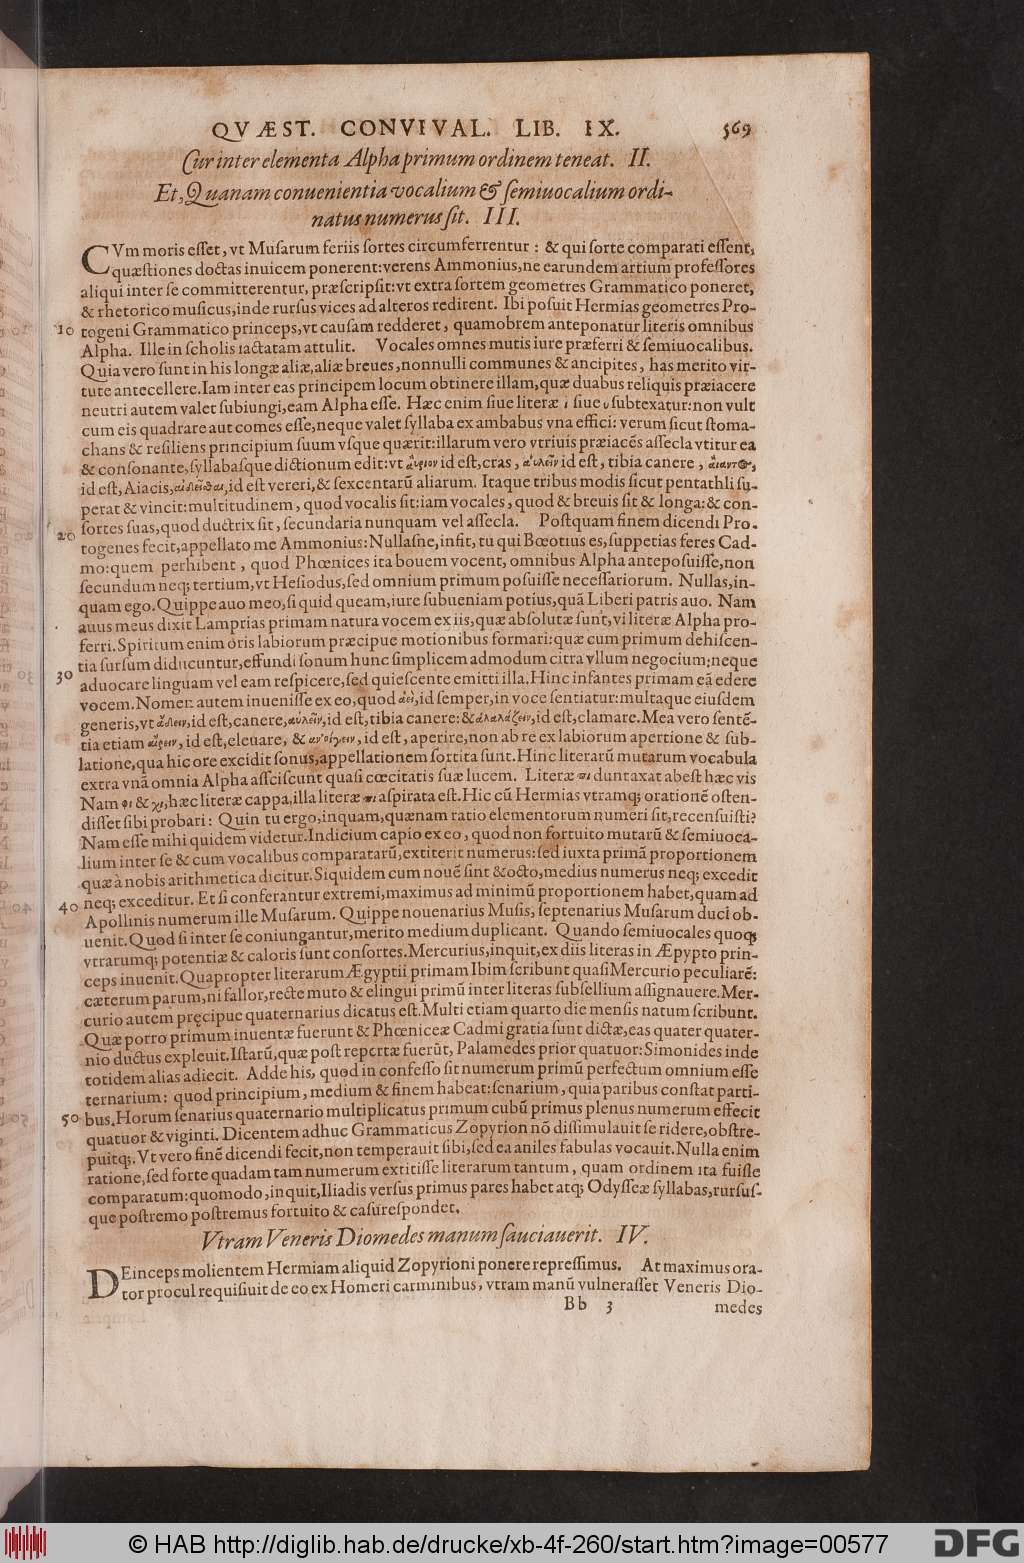 QVÆST. CONVIVAL. LIB. IX. 569
Cur inter elementa Alpha primum ordinem teneat. II.
Et, Quanam conuenientia vocalium & ſemiuocalium ordi-
natus numerus ſit. III.
CVm moris eſſet, vt Muſarum feriis ſortes circumferrentur : & qui ſorte comparati eſſent,
quæſtiones doctas inuicem ponerent: verens Ammonius, ne earundem artium profeſſores
aliqui inter ſe committerentur, præſcripſit: vt extra ſortem geometres Grammatico poneret,
& rhetorico muſicus, inde rurſus vices ad alteros redirent. Ibi poſuit Hermias geometres Pro-
10 togeni Grammatico princeps, vt cauſam redderet, quamobrem anteponatur literis omnibus
Alpha. Ille in ſcholis iactatam attulit. Vocales omnes mutis iure præferri & ſemiuocalibus.
Quia vero ſunt in his longæ aliæ, aliæ breues, nonnulli communes & ancipites, has merito vir-
tute antecellere. Iam inter eas principem locum obtinere illam, quæ duabus reliquis præiacere
neutri autem valet ſubiungi, eam Alpha eſſe. Hæc enim ſiue literæ ι ſiue υ ſubtexatur: non vult
cum eis quadrare aut comes eſſe, neque valet ſyllaba ex ambabus vna effici: verum ſicut ſtoma-
chans & reſiliens principium ſuum vſque quærit: illarum vero vtriuis præiacẽs aſſecla vtitur ea
& conſonante, ſyllabaſque dictionum edit: vt αὔριον id eſt, cras, αὐλεῖν id eſt, tibia canere, αἴαντος,
id eſt, Aiacis, αἰδεῖσθαι, id eſt vereri, & ſexcentarũ aliarum. Itaque tribus modis ſicut pentathli ſu-
perat & vincit: multitudinem, quod vocalis ſit: iam vocales, quod & breuis ſit & longa: & con-
ſortes ſuas, quod ductrix ſit, ſecundaria nunquam vel aſſecla. Poſtquam finem dicendi Pro-
20 togenes fecit, appellato me Ammonius: Nullaſne, inſit, tu qui Bœotius es, ſuppetias feres Cad-
mo: quem perhibent, quod Phœnices ita bouem vocent, omnibus Alpha antepoſuiſſe, non
ſecundum neq; tertium, vt Heſiodus, ſed omnium primum poſuiſſe neceſſariorum. Nullas, in-
quam ego. Quippe auo meo, ſi quid queam, iure ſubueniam potius, quã Liberi patris auo. Nam
auus meus dixit Lamprias primam natura vocem ex iis, quæ abſolutæ ſunt, vi literæ Alpha pro-
ferri. Spiritum enim oris labiorum præcipue motionibus formari: quæ cum primum dehiſcen-
tia ſurſum diducuntur, effundi ſonum hunc ſimplicem admodum citra vllum negocium: neque
30 aduocare linguam vel eam reſpicere, ſed quieſcente emitti illa. Hinc infantes primam eã edere
vocem. Nomen autem inueniſſe ex eo, quod ἀεὶ, id ſemper, in voce ſentiatur: multaque eiuſdem
generis, vt ᾄδειν, id eſt, canere, αὐλεῖν, id eſt, tibia canere: & ἀλαλάζειν, id eſt, clamare. Mea vero ſentẽ-
tia etiam αἴρειν, id eſt, eleuare, & ἀνοίγειν, id eſt, aperire, non ab re ex labiorum apertione & ſub-
latione, qua hic ore excidit ſonus, appellationem ſortita ſunt. Hinc literarũ mutarum vocabula
extra vnã omnia Alpha aſſciſcunt quaſi cœcitatis ſuæ lucem. Literæ πι duntaxat abeſt hæc vis
Nam φι & χι, hæc literæ cappa, illa literæ πι aſpirata eſt. Hic cũ Hermias vtramq; orationẽ oſten-
diſſet ſibi probari: Quin tu ergo, inquam, quænam ratio elementorum numeri ſit, recenſuiſti?
Nam eſſe mihi quidem videtur. Indicium capio ex eo, quod non fortuito mutarũ & ſemiuoca-
lium inter ſe & cum vocalibus comparatarũ, extiterit numerus: ſed iuxta primã proportionem
quæ à nobis arithmetica dicitur. Siquidem cum nouẽ ſint & octo, medius numerus neq; excedit
neq; exceditur. Et ſi conferantur extremi, maximus ad minimũ proportionem habet, quam ad
40 Apollinis numerum ille Muſarum. Quippe nouenarius Muſis, ſeptenarius Muſarum duci ob-
uenit. Quod ſi inter ſe coniungantur, merito medium duplicant. Quando ſemiuocales quoq;
vtrarumq; potentiæ & caloris ſunt conſortes. Mercurius, inquit, ex diis literas in Æpypto prin-
ceps inuenit. Quapropter literarum Ægyptii primam Ibim ſcribunt quaſi Mercurio peculiarẽ:
cæterum parum, ni fallor, recte muto & elingui primũ inter literas ſubſellium aſſignauere. Mer-
curio autem pręcipue quaternarius dicatus eſt. Multi etiam quarto die menſis natum ſcribunt.
Quæ porro primum inuentæ fuerunt & Phœniceæ Cadmi gratia ſunt dictæ, eas quater quater-
nio ductus expleuit. Iſtarũ, quæ poſt repertæ fuerũt, Palamedes prior quatuor: Simonides inde
totidem alias adiecit. Adde his, quod in confeſſo ſit numerum primũ perfectum omnium eſſe
ternarium: quod principium, medium & finem habeat: ſenarium, quia paribus conſtat parti-
50 bus. Horum ſenarius quaternario multiplicatus primum cubũ primus plenus numerum effecit
quatuor & viginti. Dicentem adhuc Grammaticus Zopyrion nõ diſſimulauit ſe ridere, obſtre-
puitq;. Vt vero finẽ dicendi fecit, non temperauit ſibi, ſed ea aniles fabulas vocauit. Nulla enim
ratione, ſed forte quadam tam numerum extitiſſe literarum tantum, quam ordinem ita fuiſſe
comparatum: quomodo, inquit, Iliadis verſus primus pares habet atq; Odyſſeæ ſyllabas, rurſuſ-
que poſtremo poſtremus fortuito & caſu reſpondet.
Vtram Veneris Diomedes manum ſauciauerit. IV.
DEinceps molientem Hermiam aliquid Zopyrioni ponere repreſſimus. At maximus ora-
tor procul requiſiuit de eo ex Homeri carminibus, vtram manũ vulneraſſet Veneris Dio-
Bb 3 medes
© HAB http://diglib.hab.de/drucke/xb-4f-260/start.htm?image=00577
DFG